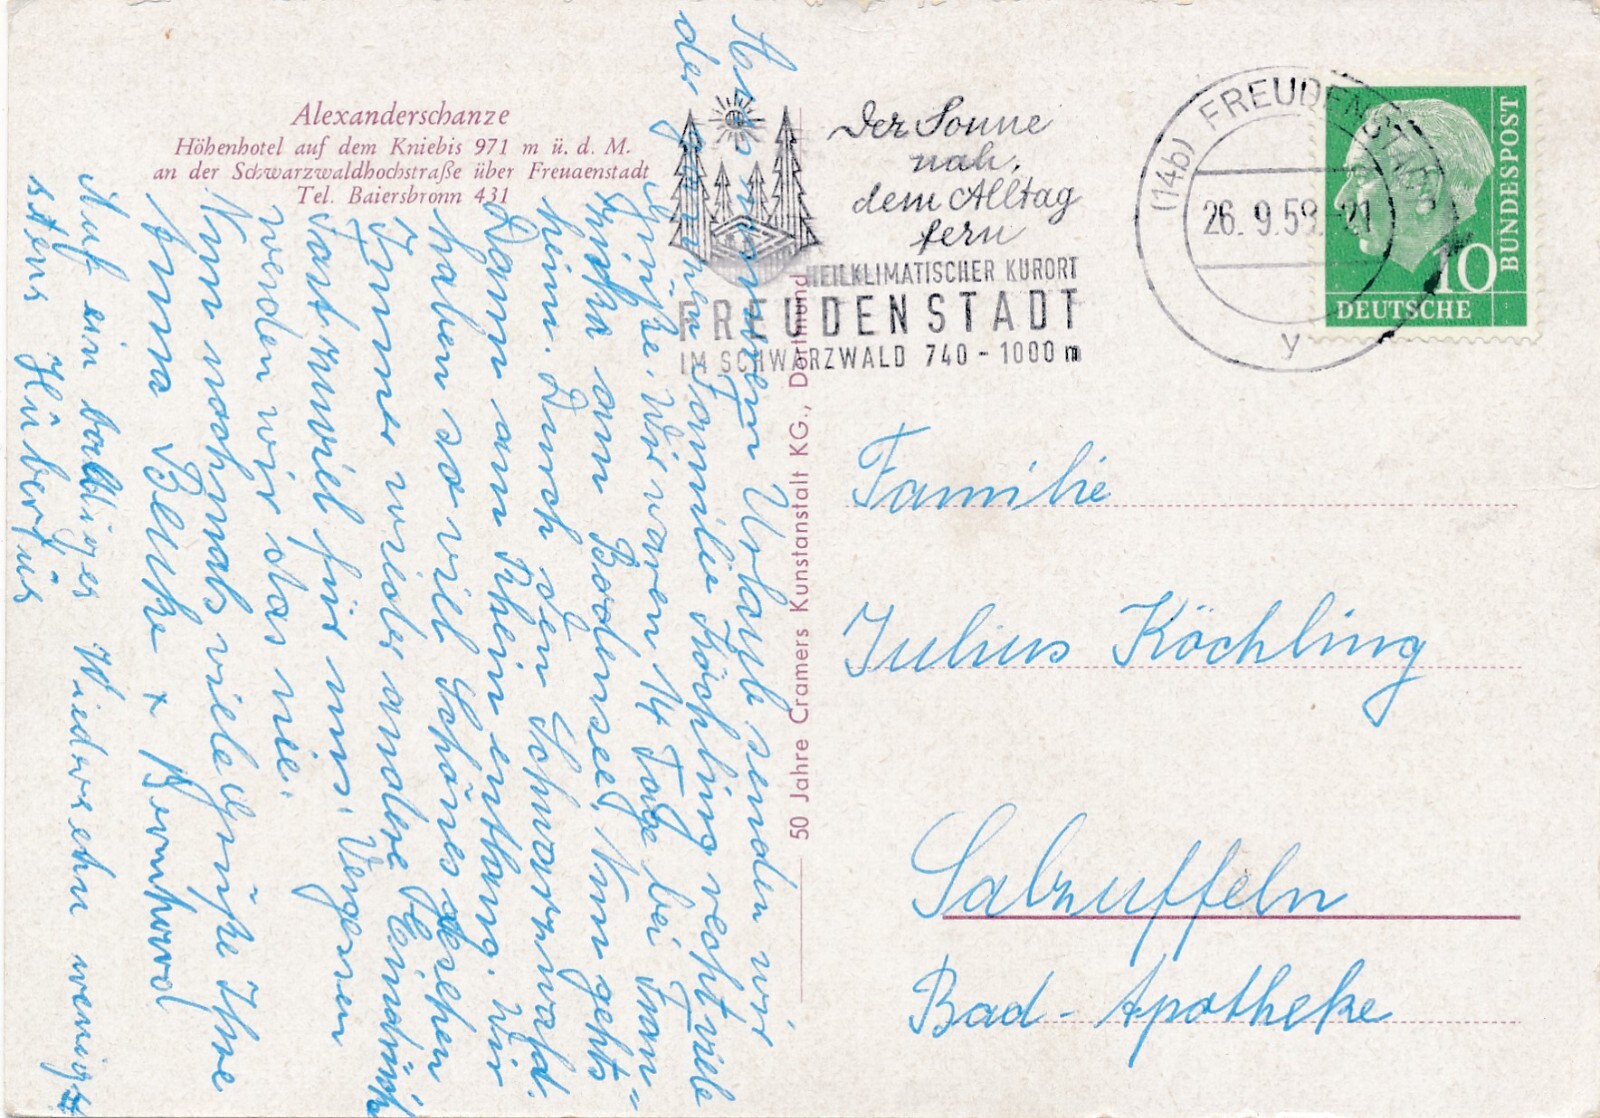 Alexanderschanze
Höhenhotel auf dem Kniebis 971 m ü. d. M.
an der Schwarzwaldhochstraße über Freudenstadt
Tel. Baiersbronn 431
Aus unserem Urlaub senden wir
der ganzen Familie Köchling recht viele
Grüße. Wir waren 14 Tage bei Fran=
ziska am Bodensee. Nun gehts
heim. Durch den Schwarzwald.
Dann am Rhein entlang. Wir
haben so viel Schönes gesehen
Immer wieder andere Eindrücke
Fast zuviel für uns. Vergessen
werden wir das nie.
Nun nochmals viele Grüße Ihre
Anna + Bernhard
Auf ein baldiges Wiedersehn wenigst
stens Hubertus
50 Jahre Cramers Kunstanstalt KG., Dortmund
Der Sonne
nah,
dem Alltag
fern
HEILKLIMATISCHER KURORT
FREUDENSTADT
IM SCHWARZWALD 740 - 1000 m
(14b) FREUDENSTADT
26. 9. 59. - 21
y
DEUTSCHE
BUNDESPOST
10
Familie
Julius Köchling
Salzuffeln
Bad-Apotheke